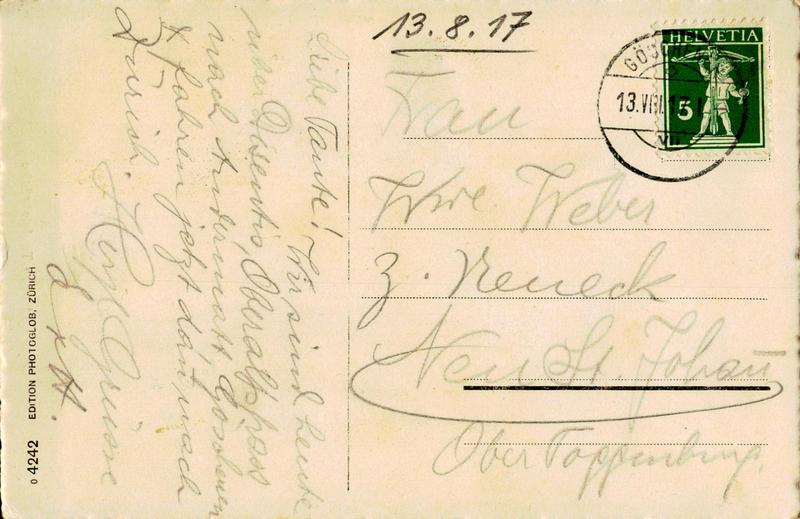 13.8.17
HELVETIA
5
13.VIII.17
Frau
Wwe. Weber
z. Reneck
Neu St. Johann
Ober Toggenburg.
Liebe Tante! Wir sind heute
über Disentis, Oberalppass
nach Andermatt Göschenen
& fahren jetzt dan nach
Zürich. Herzl. Grüsse
EDITION PHOTOGLOB, ZÜRICH
0 4242